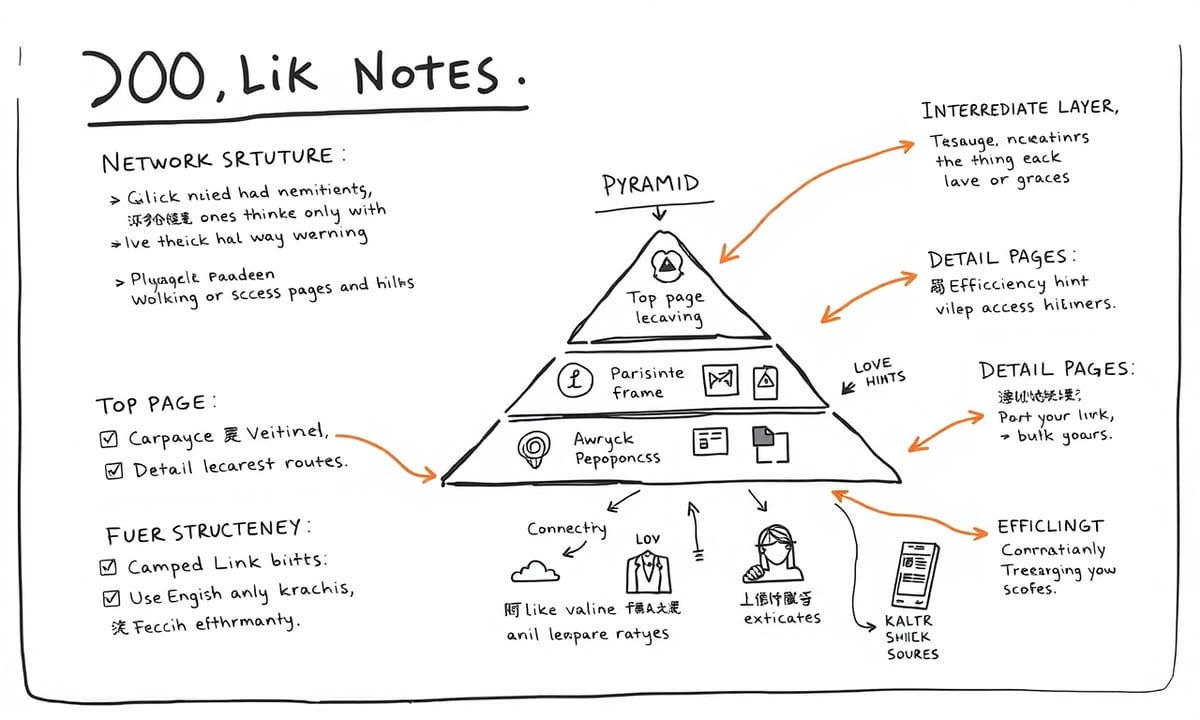 ƆOO, LiK NOTES.
NETWORK SRTUTURE:
> Gilick nuied had nemitients,
ones thinke only with
Ive theick hal way werning
> Plyuagelt Paadeen
Wolking or sccess pages and hilts
TOP PAGE:
☑ Carpayce Veitinel,
☑ Detail lecarest routes.
FUER STRUCTENEY:
☑ Camped Link biitts:
☑ Use Engish anly krachis,
Feccih efthrmanty.
PYRAMID
Top page
lecaving
Parisinte
frame
Awryck
Pepoponcss
LOVE
HINTS
Connectry
LOV
like valine
anil lenpare ratyes
exticates
KALTR
SHIICK
SOURES
INTERREDIATE LAYER,
Tesauge, nceatinrs
the thing eack
lave or graces
DETAIL PAGES:
Efficciency hint
vilep access hitimers.
DETAIL PAGES:
Part your link,
→ bulk yours.
EFFICLINGT
Conrratianly
Trearging you
scofes.